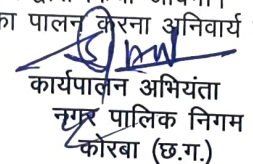 का पालन करना अनिवार्य
कार्यपालन अभियंता
नगर पालिक निगम
कोरबा (छ.ग.)